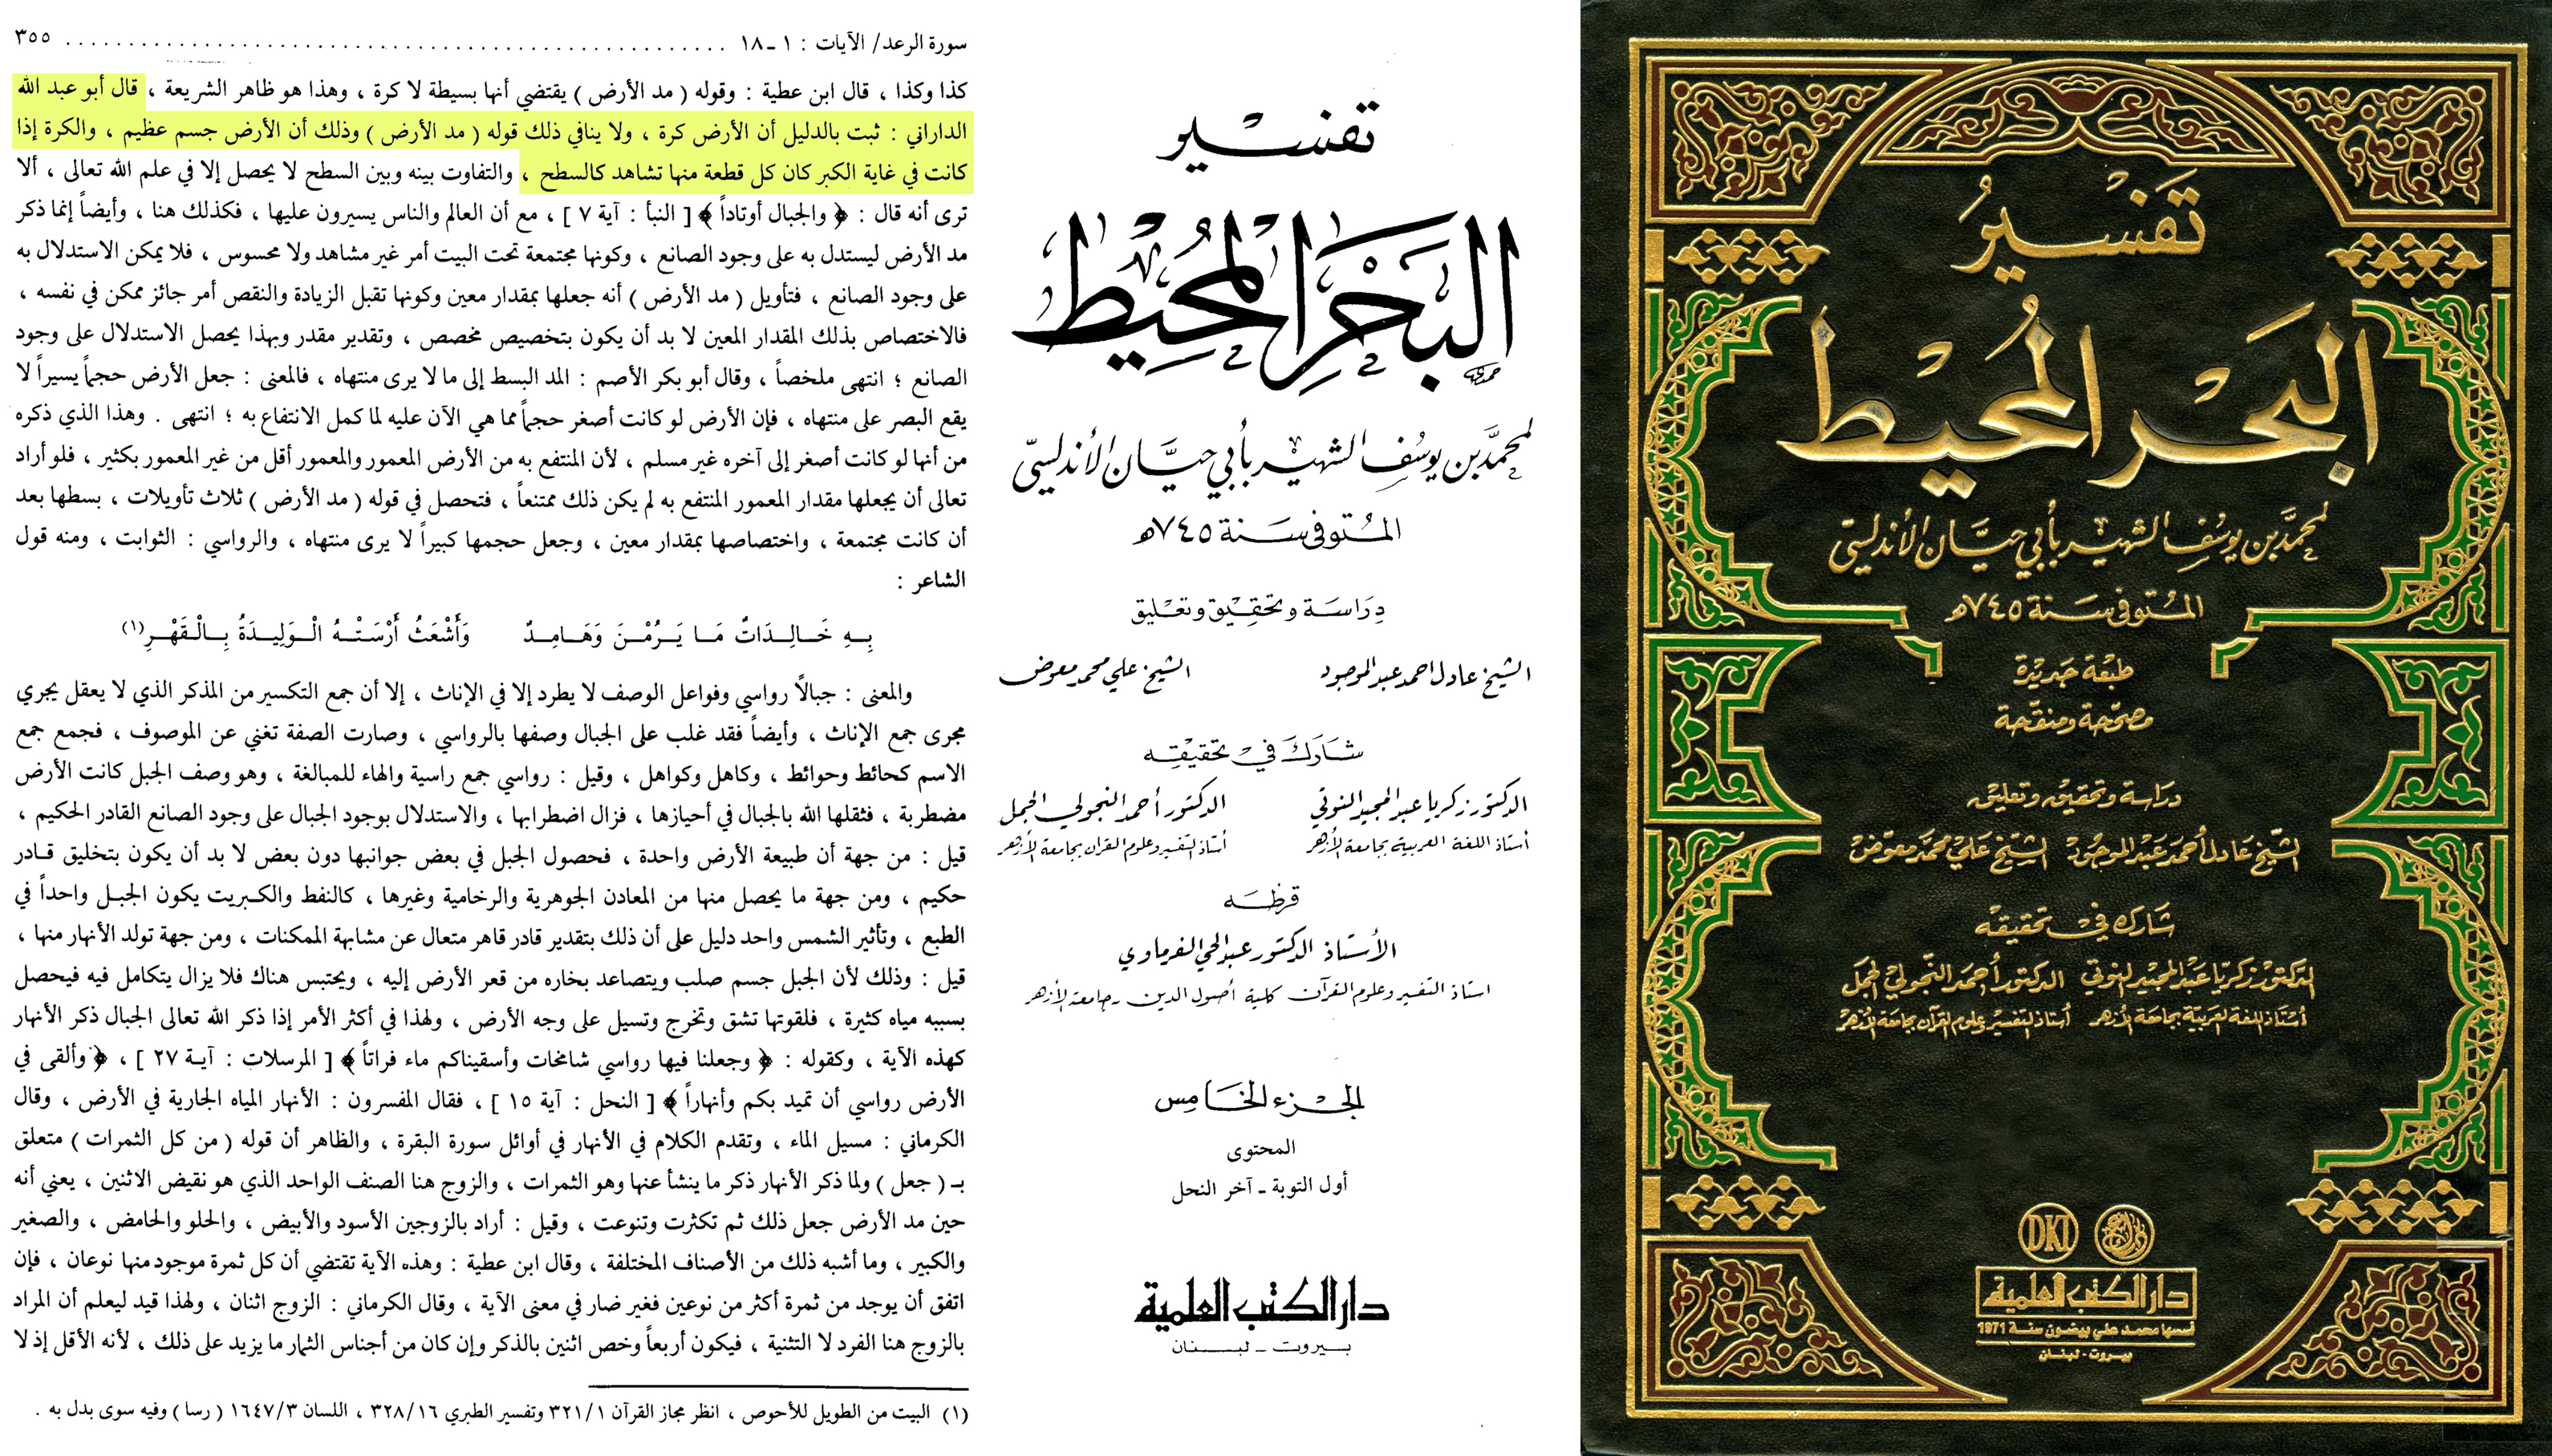 سورة الرعد/ الآيات : ١ ـ ١٨ ........................................................ ٣٥٥
كذا وكذا ، قال ابن عطية : وقوله ( مد الأرض ) يقتضي أنها بسيطة لا كرة ، وهذا هو ظاهر الشريعة ، قال أبو عبد الله
الداراني : ثبت بالدليل أن الأرض كرة ، ولا ينافي ذلك قوله ( مد الأرض ) وذلك أن الأرض جسم عظيم ، والكرة إذا
كانت في غاية الكبر كان كل قطعة منها تشاهد كالسطح ، والتفاوت بينه وبين السطح لا يحصل إلا في علم الله تعالى ، ألا
ترى أنه قال : ﴿ والجبال أوتاداً ﴾ [ النبأ : آية ٧ ] ، مع أن العالم والناس يسيرون عليها ، فكذلك هنا ، وأيضاً إنما ذكر
مد الأرض ليستدل به على وجود الصانع ، وكونها مجتمعة تحت البيت أمر غير مشاهد ولا محسوس ، فلا يمكن الاستدلال به
على وجود الصانع ، فتأويل ( مد الأرض ) أنه جعلها بمقدار معين وكونها تقبل الزيادة والنقص أمر جائز ممكن في نفسه ،
فالاختصاص بذلك المقدار المعين لا بد أن يكون بتخصيص مخصص ، وتقدير مقدر وبهذا يحصل الاستدلال على وجود
الصانع ؛ انتهى ملخصاً ، وقال أبو بكر الأصم : المد البسط إلى ما لا يرى منتهاه ، فالمعنى : جعل الأرض حجماً يسيراً لا
يقع البصر على منتهاه ، فإن الأرض لو كانت أصغر حجماً مما هي الآن عليه لما كمل الانتفاع به ؛ انتهى . وهذا الذي ذكره
من أنها لو كانت أصغر إلى آخره غير مسلم ، لأن المنتفع به من الأرض المعمور والمعمور أقل من غير المعمور بكثير ، فلو أراد
تعالى أن يجعلها مقدار المعمور المنتفع به لم يكن ذلك ممتنعاً ، فتحصل في قوله ( مد الأرض ) ثلاث تأويلات ، بسطها بعد
أن كانت مجتمعة ، واختصاصها بمقدار معين ، وجعل حجمها كبيراً لا يرى منتهاه ، والرواسي : الثوابت ، ومنه قول
الشاعر :
بِهِ خَالِدَاتٌ مَا يَرُمْنَ وَهَامِدٌ وَأَشْعَثُ أَرْسَتْهُ الْوَلِيدَةُ بِالْقَهْرِ(١)
والمعنى : جبالاً رواسي وفواعل الوصف لا يطرد إلا في الإناث ، إلا أن جمع التكسير من المذكر الذي لا يعقل يجري
مجرى جمع الإناث ، وأيضاً فقد غلب على الجبال وصفها بالرواسي ، وصارت الصفة تغني عن الموصوف ، فجمع جمع
الاسم كحائط وحوائط ، وكاهل وكواهل ، وقيل : رواسي جمع راسية والهاء للمبالغة ، وهو وصف الجبل كانت الأرض
مضطربة ، فثقلها الله بالجبال في أحيازها ، فزال اضطرابها ، والاستدلال بوجود الجبال على وجود الصانع القادر الحكيم ،
قيل : من جهة أن طبيعة الأرض واحدة ، فحصول الجبل في بعض جوانبها دون بعض لا بد أن يكون بتخليق قادر
حكيم ، ومن جهة ما يحصل منها من المعادن الجوهرية والرخامية وغيرها ، كالنفط والكبريت يكون الجبل واحداً في
الطبع ، وتأثير الشمس واحد دليل على أن ذلك بتقدير قادر قاهر متعال عن مشابهة الممكنات ، ومن جهة تولد الأنهار منها ،
قيل : وذلك لأن الجبل جسم صلب ويتصاعد بخاره من قعر الأرض إليه ، ويحتبس هناك فلا يزال يتكامل فيه فيحصل
بسببه مياه كثيرة ، فلقوتها تشق وتخرج وتسيل على وجه الأرض ، ولهذا في أكثر الأمر إذا ذكر الله تعالى الجبال ذكر الأنهار
كهذه الآية ، وكقوله : ﴿ وجعلنا فيها رواسي شامخات وأسقيناكم ماء فراتاً ﴾ [ المرسلات : آية ٢٧ ] ، ﴿ وألقى في
الأرض رواسي أن تميد بكم وأنهاراً ﴾ [ النحل : آية ١٥ ] ، فقال المفسرون : الأنهار المياه الجارية في الأرض ، وقال
الكرماني : مسيل الماء ، وتقدم الكلام في الأنهار في أوائل سورة البقرة ، والظاهر أن قوله ( من كل الثمرات ) متعلق
بـ ( جعل ) ولما ذكر الأنهار ذكر ما ينشأ عنها وهو الثمرات ، والزوج هنا الصنف الواحد الذي هو نقيض الاثنين ، يعني أنه
حين مد الأرض جعل ذلك ثم تكثرت وتنوعت ، وقيل : أراد بالزوجين الأسود والأبيض ، والحلو والحامض ، والصغير
والكبير ، وما أشبه ذلك من الأصناف المختلفة ، وقال ابن عطية : وهذه الآية تقتضي أن كل ثمرة موجود منها نوعان ، فإن
اتفق أن يوجد من ثمرة أكثر من نوعين فغير ضار في معنى الآية ، وقال الكرماني : الزوج اثنان ، ولهذا قيد ليعلم أن المراد
بالزوج هنا الفرد لا التثنية ، فيكون أربعاً وخص اثنين بالذكر وإن كان من أجناس الثمار ما يزيد على ذلك ، لأنه الأقل إذ لا
(١) البيت من الطويل للأحوص ، انظر مجاز القرآن ٣٢١/١ وتفسير الطبري ٣٢٨/١٦ ، اللسان ١٦٤٧/٣ ( رسا ) وفيه سوى بدل به .
تفسير
البَحْرُ المُحِيط
لمحمَّد بن يوسُف الشهير بأبي حيَّان الأندلسيّ
المتوفى سنة ٧٤٥هـ
دِرَاسَة وتحقِيق وتعليق
الشيخ عادل احمد عبد الموجود الشيخ علي محمد معوض
شاركَ في تحقيقِه
الدكتور زكريا عبد المجيد النوتي الدكتور أحمد النجولي الجمل
أستاذ اللغة العربية بجامعة الأزهر أستاذ التفسير وعلوم القرآن بجامعة الأزهر
قرظه
الأستاذ الدكتور عبد الحي الفرماوي
استاذ التفسير وعلوم القرآن كلية أصول الدين ـ جامعة الأزهر
الجزء الخامس
المحتوى
أول التوبة ـ آخر النحل
دار الكتب العلمية
بيروت ـ لبنان
تَفسيرُ
البَحرُ المُحيط
لمحمَّد بن يوسُف الشهير بأبي حيَّان الأندلسيّ
المتوفى سنة ٧٤٥هـ
طبعَة جَديدة
مصحّحة ومنقّحة
دراسة وتحقيق وتعليق
الشّيخ عَادل أحمَد عَبد الموجُود الشّيخ عَلي محمَّد معوّض
شَارك في تحقيقه
الدكتور زكريّا عَبد المجيد النوتي الدكتور أحمَد النّجولي الجمَل
أستاذ اللغة العربيّة بجامعَة الأزهر أستاذ التفسير وعلوم القرآن بجامعَة الأزهر
DKI
دار الكتب العلمية
أسسها محمد علي بيضون سنة 1971
بيروت - لبنان